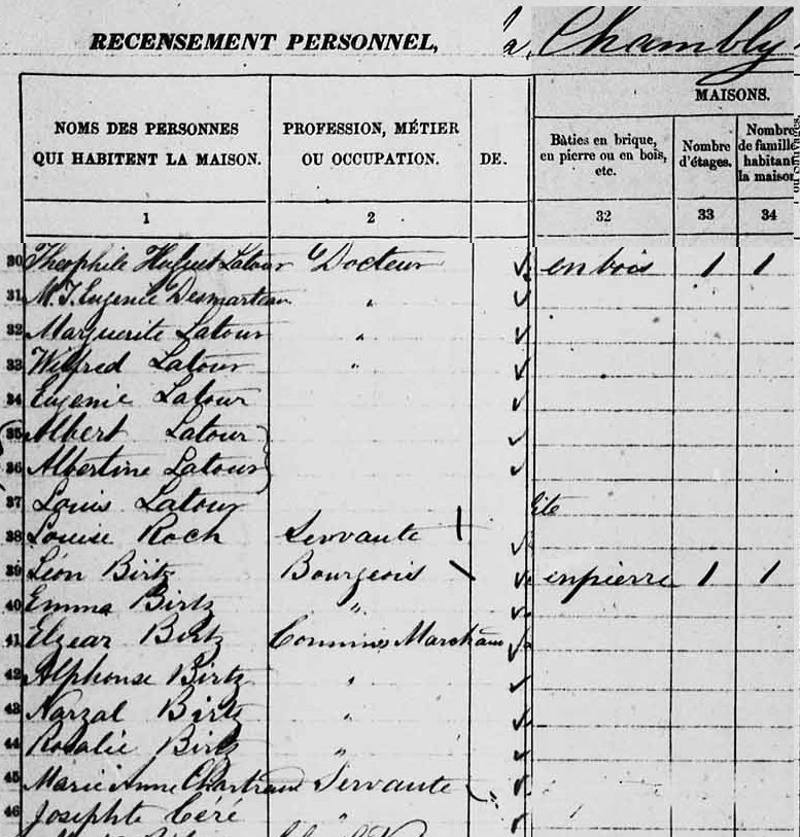 RECENSEMENT PERSONNEL, à Chambly
MAISONS.
NOMS DES PERSONNES QUI HABITENT LA MAISON.
PROFESSION, MÉTIER OU OCCUPATION.
DE.
Bâties en brique, en pierre ou en bois, etc.
Nombre d'étages.
Nombre de famille habitant la maison
1 2 32 33 34
30 Théophile Huguet Latour Docteur en bois 1 1
31 M. J. Eugenie Desmarteau "
32 Marguerite Latour "
33 Wilfred Latour "
34 Eugenie Latour
35 Albert Latour
36 Albertine Latour
37 Louis Latour
38 Louise Roch Servante
39 Léon Birtz Bourgeois en pierre 1 1
40 Emma Birtz "
41 Elzear Birtz Commis Marchand
42 Alphonse Birtz "
43 Narzal Birtz "
44 Rosalie Birtz "
45 Marie Anne Chartrand Servante
46 Josephte Céré "